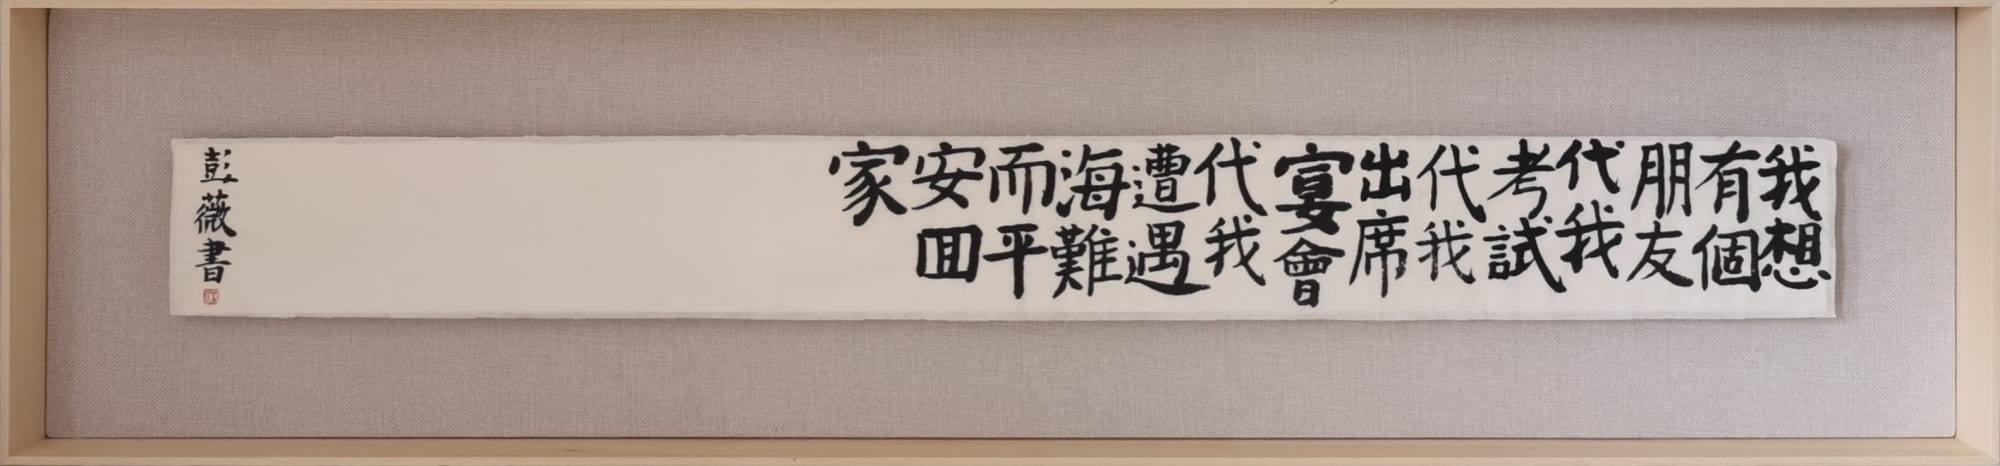 我想
有個
朋友
代我
考試
代我
出席
宴會
代我
遭遇
海難
而平
安囬
家
彭薇書